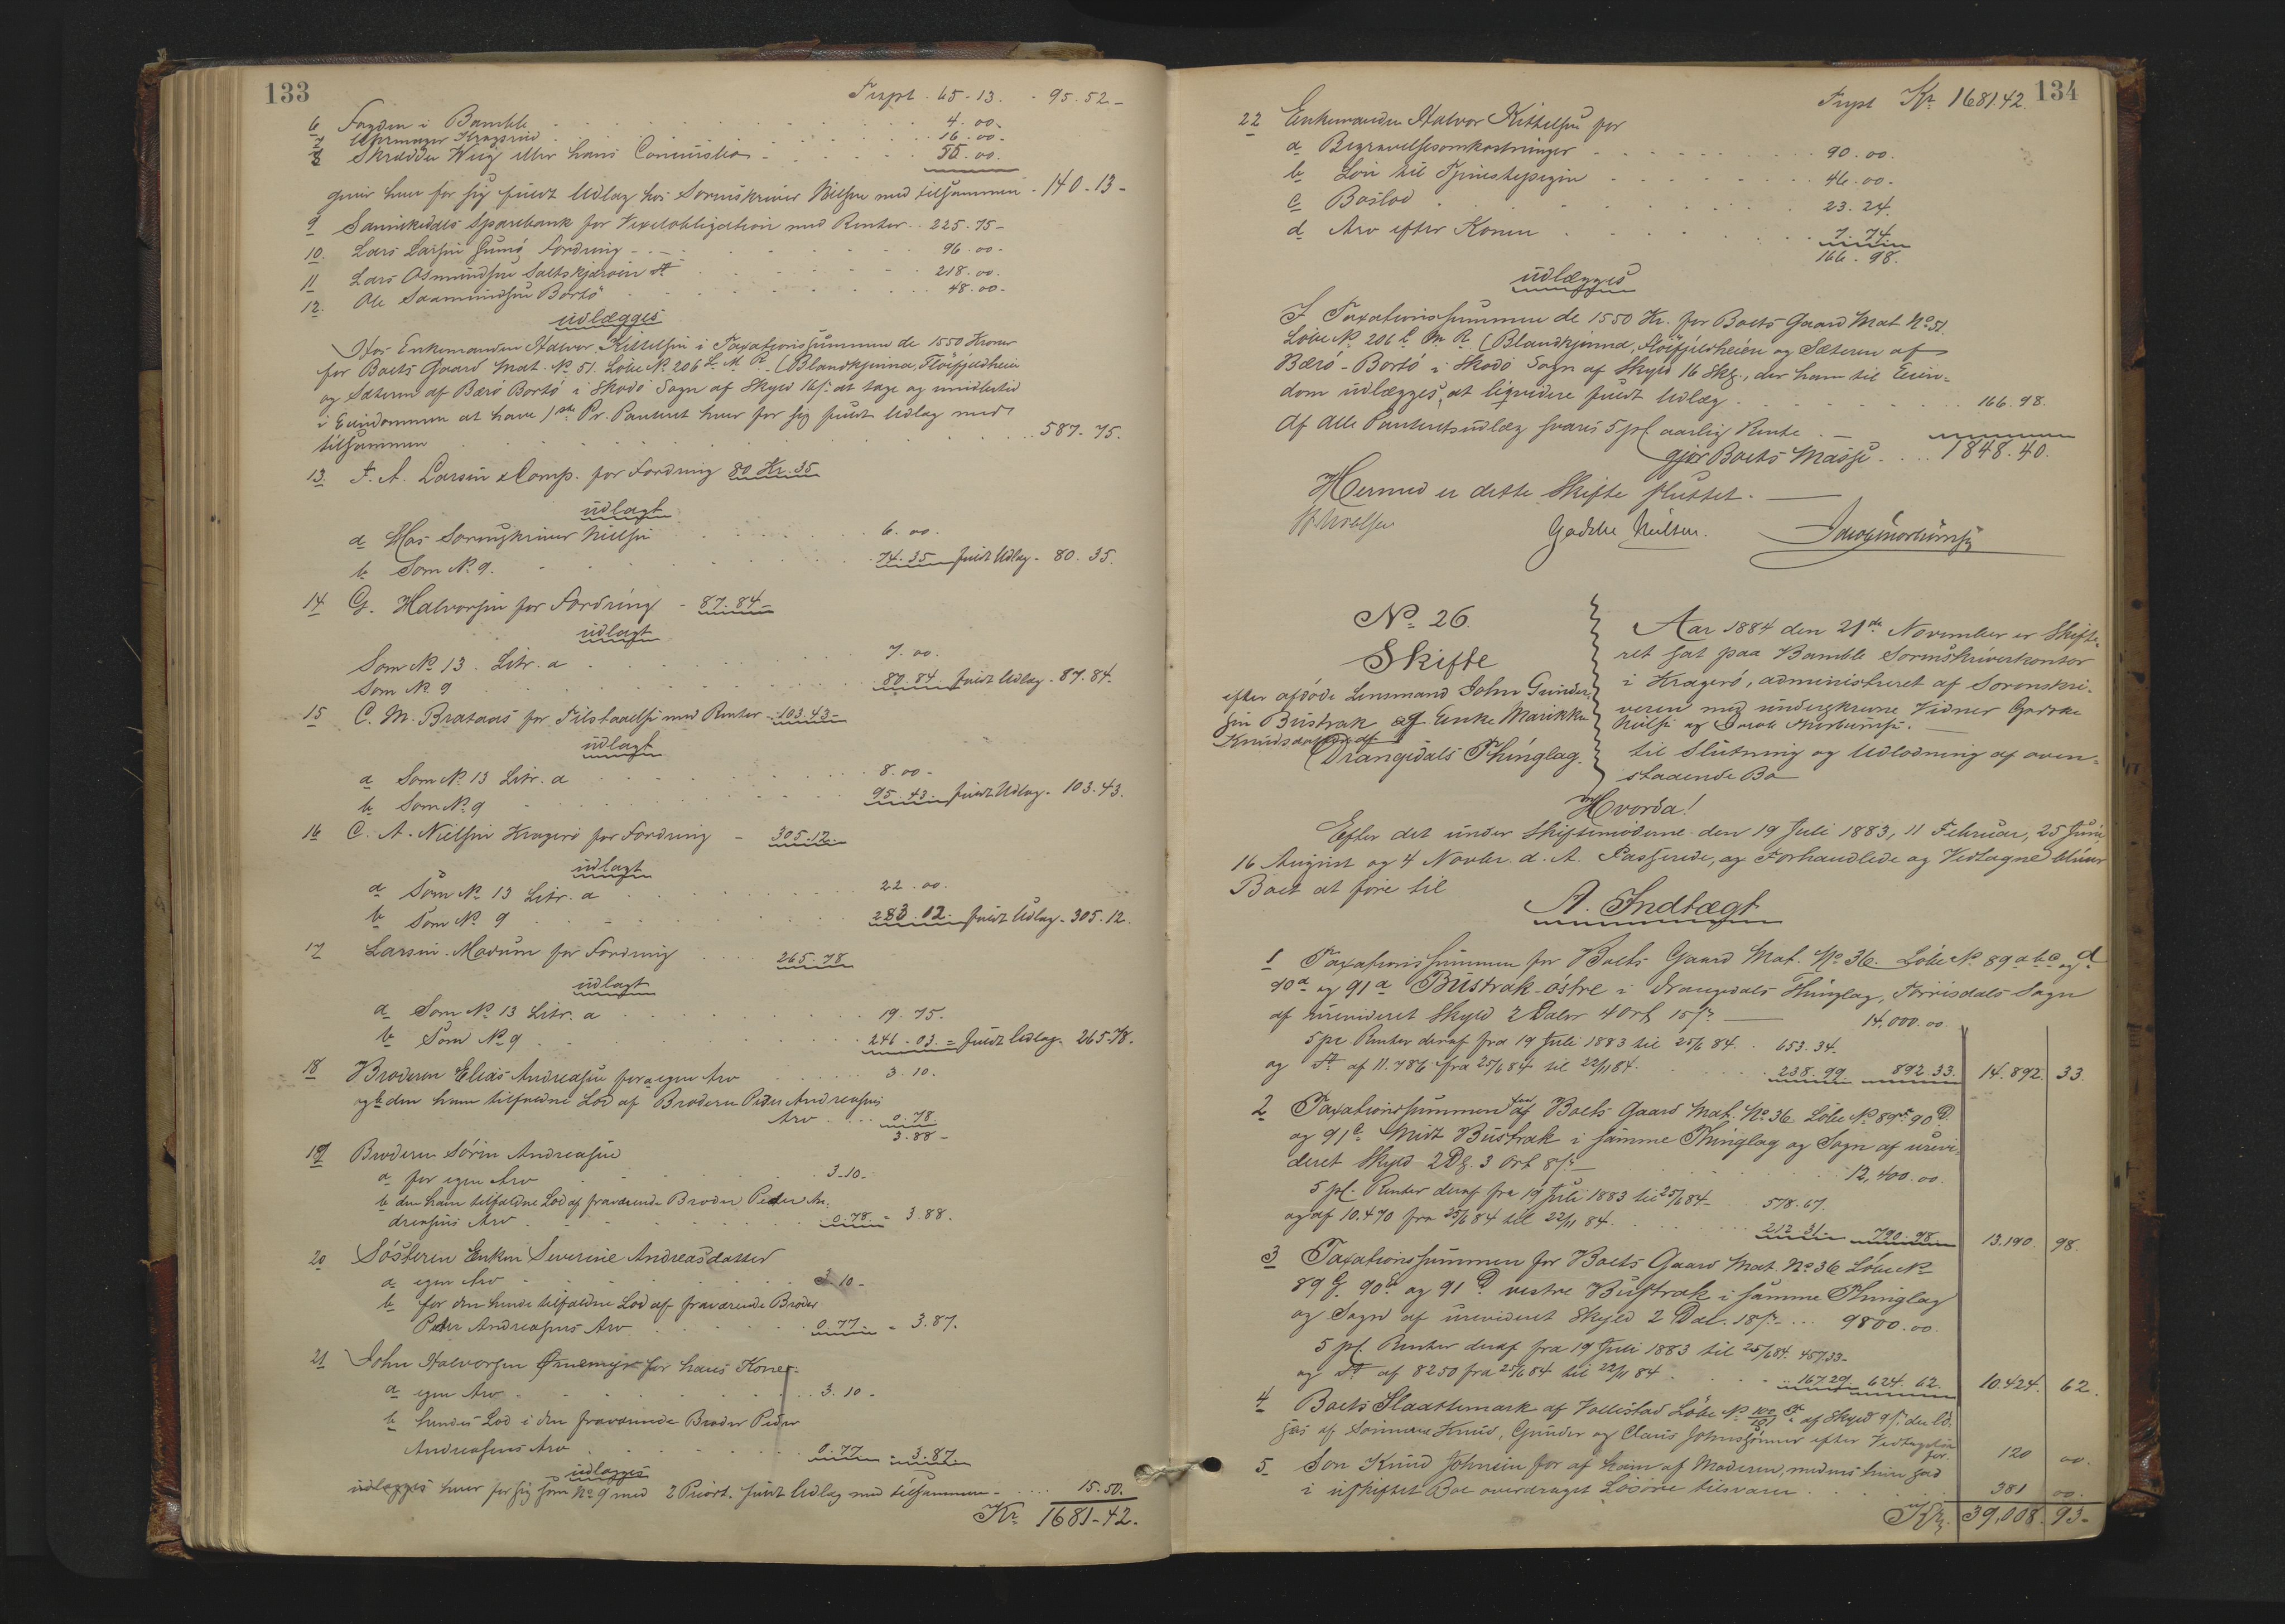 133
Trspt. 65-13. - 95.52-
6 Fogden i Bamble 4.00-
7 16.00-
8 Skrædder Wiig eller hans Concursbo 55.00.
giver hver for sig fuldt Udlag hos Sorenskriver Nielsen med tilsammen - 140-13-
9 Sannikedals Sparebank for Vexelobligation med Renter 225.75-
10. Lars Larsen Gumø Fordring 96.00-
11 Lars Osmundsen Saltskjærven dto 218.00.
12. Ole Saamundsen Bortø 48.00-
udlægges
Hos Enkemanden Halvor Kittelsen i Taxationssummen de 1550 Kroner
for Boets Gaard Mat. No 51. Løbe No 206 L. M. R. (Blandkjenna, Fløifjeldheien
og Sæteren af Bærø Bortø i Skodø Sogn af Skyld 16 s. at tage og imidlertid
i Eiendommen at have 1ste Pr. Panteret hver for sig fuldt Udlag med
tilsammen 587-75.
13. F. A. Larsen & Comp. for Fordring 80 Kr. 35
udlagt
a Hos Sorenskriver Nielsen 6.00.
b Som No 9. 74.35 fuldt Udlag - 80.35.
14 G. Halvorsen for Fordring - 87.84-
udlagt
Som No 13. Litr. a 7.00.
Som No 9 80.84 fuldt Udlag - 87.84.
15 C. M. Brataas for Tilstaaelse med Renter - 103.43-
udlagt
a Som No 13 Litr. a 8.00-
b Som No 9 95.43. fuldt Udlag - 103.43.
16 C. A. Nielsen Kragerø for Fordring - 305.12.
udlagt
a Som No 13 Litr. a 22.00.
b Som No 9 283.12. fuldt Udlag - 305.12.
17 Larsen Madum for Fordring 265.78
udlagt
a Som No 13 Litr. a 19.75.
b Som No 9 246.03. = fuldt Udlag - 265.78.
18 Broderen Elias Andreasen for a egen Arv 3.10.
og b den ham tilfaldne Lod af Broderen Peder Andreasens
Arv 0.78.
3.88-
19 Broderen Sørin Andreasen
a for egen Arv 3.10.
b den ham tilfaldne Lod af fraværende Broder Peder An-
dreasens Arv 0.78. = 3.88.
20 Søsteren Enken Severine Andreasdatter
a egen Arv 3.10-
b for den hende tilfaldne Lod af fraværende Broder
Peder Andreasens Arv 0.77. = 3.87.
21 John Halvorsen for hans Kone:
a egen Arv 3.10-
b hendes Lod i den fraværende Broder Peder
Andreasens Arv 0.77 = 3.87.
udlægges
udlægges hver for sig som No 9 med 2 Priort. fuldt Udlag med tilsammen - 15.50.
Kr. 1681-42.
134
Trspt Kr. 1681 42.
22 Enkemanden Halvor Kittelsen for
a Begravelsesomkostninger 90.00.
b Løn til Tjenestepigen 46.00-
c Boslod 23.24.
d Arv efter Konen 7.74
166.98.
udlægges
I Taxationssummen de 1550 Kr. for Boets Gaard Mat No 51.
Løbe No 206 L M R. (Blandkjenna, Fløifjeldheien og Sæteren af
Bærø-Bortø i Skodø Sogn af Skyld 16 Skl., der ham til Eien-
dom udlægges, at liqvidere fuldt Udlæg 166.98.
Af Alle Panteretsudlæg svares 5 pC. aarlig Rente. -
gjør Boets Masse 1848.40.
Hermed er dette Skifte sluttet.
Godske Nielsen.
No 26.
Skifte
efter afdøde Lensmand John Gunder-
sen Bustrak og Enke Marikken
Knudsdatter af
Drangedals Thinglag.
Aar 1884 den 21de November er Skifte-
ret sat paa Bamble Sorenskriverkontor
i Kragerø, administreret af Sorenskri-
veren med undertegnede Vidner Godske
Nielsen og
til Slutning og Udlodning af oven-
staaende Bo
Hvorda!
Efter det under Skiftemøderne den 19 Juli 1883, 11 Februar, 25 Juni,
16 August og 4 Novbr. d. A. Passerede, og Forhandlede og Vedtagne bliver
Boet at føre til
A. Indtægt
1 Taxationssummen for Boets Gaard Mat. No 36. Løbe No 89 a b c og d
90 a og 91 a Bustrak østre i Drangedals Thinglag, Tørrisdals Sogn
af urevideret Skyld 2 Daler 4 Ort 15 s. 14,000.00
5 pc. Renter deraf fra 19 Juli 1883 til 25/6 84. 653.34-
og dto af 11.786 fra 25/6 84 til 22/11 84. 238.99 892.33. 14.892 33.
2 Taxationssummen for Boets Gaard Mat. No 36 Løbe No 89 90 b
og 91 c Midt Bustrak i samme Thinglag og Sogn af urevi-
deret Skyld 2 Dl. 3 Ort 8 s. 12,400.00.
5 pC. Renter deraf fra 19 Juli 1883 til 25/6 84- 578.67.
og af 10.470 fra 25/6 84 til 22/11 84. 212.31. 790.98 13.190. 98.
3 Taxationssummen for Boets Gaard Mat. No 36 Løbe No
89 g. 90 og 91 d vestre Bustrak i samme Thinglag
og Sogn af urevideret Skyld 2 Dal. 18 s. 9800.00.
5 pC. Renter deraf fra 19 Juli 1883 til 25/6 84. 457.33-
og dto af 8250 fra 25/6 84 til 22/11 84 167.29. 624.62. 10.424. 62.
4 Boets Slaattemark af Vollestad Løbe No af Skyld 9 s. der lø-
ses af Sønnerne Knud, Gunder og Claus Johnssønner efter Vedtagelse
for 120 00.
5 Søn Knud Johnsen for af ham af Moderen, medens hun sad
i uskiftet Boe overdraget Løsøre tilsvarer 381 00.
Kr. 39,008. 93-